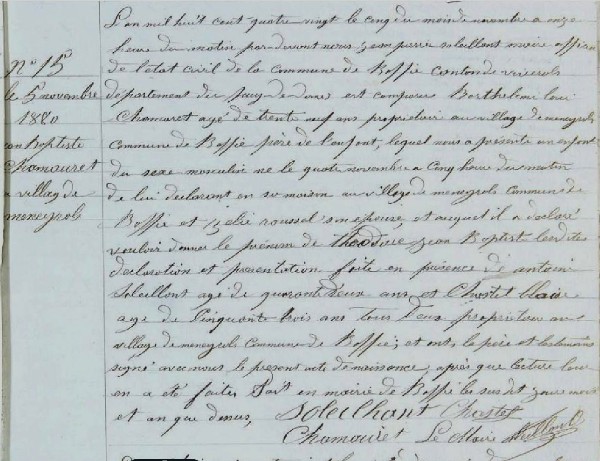 N° 15
le 5 novembre
1880
Jean Baptiste
Chamouret
a village de
meneyrols
L'an mil huit cent quatre vingt le cinq du mois de novembre a onze
heure du matin par devant nous Jean pierre soleillant maire officier
de l'état civil de la commune de Boffie canton de viverols
departement du puy de dome est comparu Barthelemi
Chamouret agé de trente neuf ans propriétaire au village de meneyrols
Commune de Boffie père de l'enfant, lequel nous a présenté un enfant
du sexe masculin né le quatre novembre a cinq heure du matin
de lui déclarant en sa maison au village de meneyrols Commune de
Boffie et roussel son epouse, et auquel il a declaré
vouloir donner le prénom de Théodore Jean Baptist lesdites
declaration et presentation faite en présence de antoine
Soleillant agé de quarante deux ans et Chastel Claude
age de Cinquante trois ans tous Deux propriétaire au
village de meneyrols Commune de Boffie, et ont, le père et les temoins
signé avec nous le present acte de naissance, après que lecture leur
en a été faite, Fait en mairie de Boffie les susdit jour mois
et an que dessus,
Soleilhant Chastel
Chamouret Le Maire Soleillant